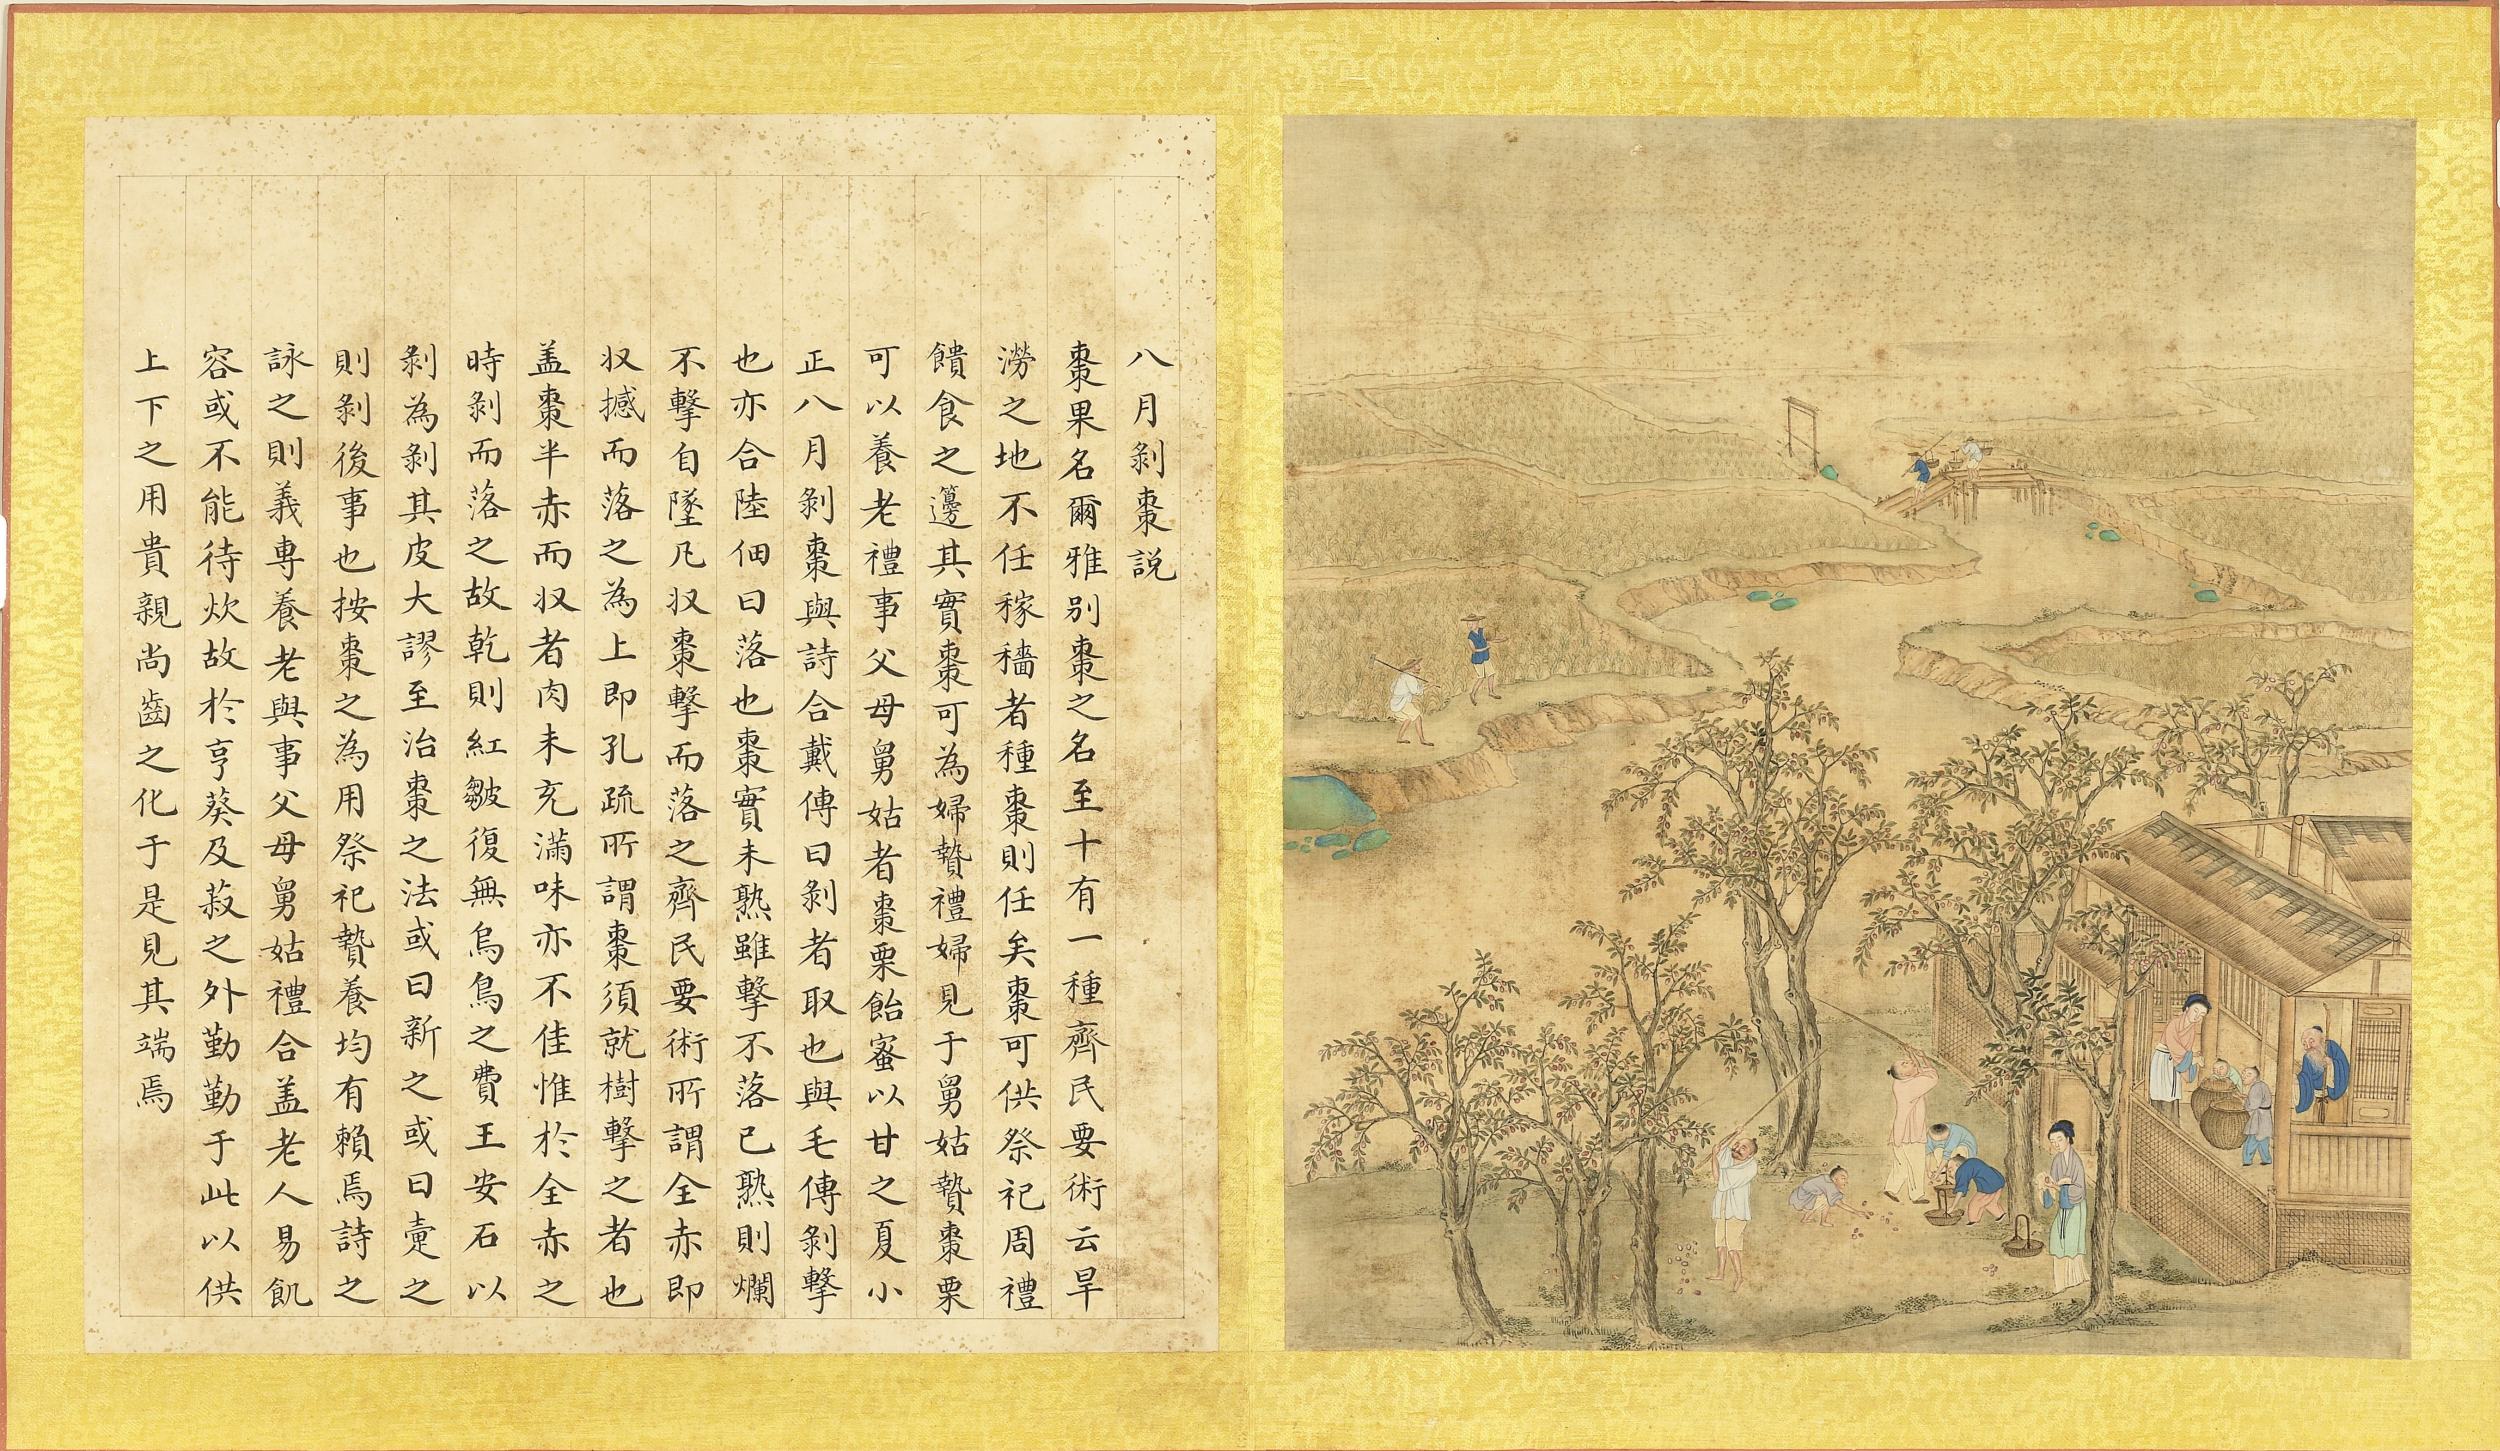 八月剝棗説
棗果名爾雅别棗之名至十有一種齊民要術云旱
澇之地不任稼穡者種棗則任矣棗可供祭祀周禮
饋食之籩其實棗可為婦贄禮婦見于舅姑贄棗栗
可以養老禮事父母舅姑者棗栗飴蜜以甘之夏小
正八月剝棗與詩合戴傳曰剝者取也與毛傳剝擊
也亦合陸佃曰落也棗實未熟雖擊不落已熟則爛
不擊自墜凡収棗擊而落之齊民要術所謂全赤即
収撼而落之為上即孔疏所謂棗須就樹擊之者也
盖棗半赤而収者肉未充滿味亦不佳惟於全赤之
時剝而落之故乾則紅皺復無烏鳥之費王安石以
剝為剝其皮大謬至治棗之法或曰新之或曰疐之
則剝後事也按棗之為用祭祀贄養均有賴焉詩之
詠之則義專養老與事父母舅姑禮合盖老人易飢
容或不能待炊故於亨葵及菽之外勤勤于此以供
上下之用貴親尚齒之化于是見其端焉